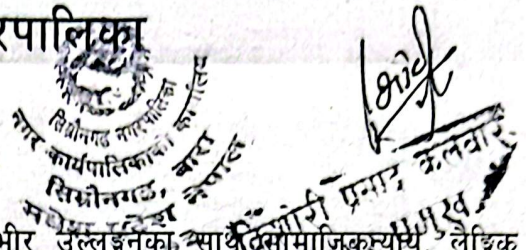 रपालिका
सिम्रौनगढ नगरपालिका
नगर कार्यपालिकाको कार्यालय
सिम्रौनगढ, बारा
मधेश प्रदेश नेपाल
प्रसाद कलवार
प्रमुख
भीर उल्लङ्घनका साथै सामाजिक न्याय लैङ्गिक